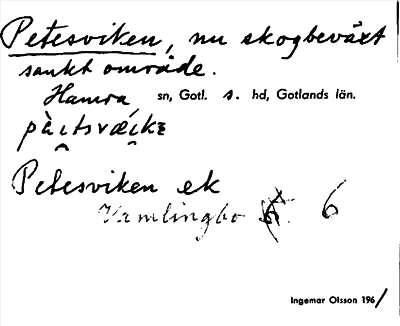 Petesviken, nu skogbeväxt
sankt område.
Hamra sn, Gotl. s. hd, Gotlands län.
pà̯itsvæi̯kɛ
Petesviken ek
Vamlingbo 6
Ingemar Olsson 1961